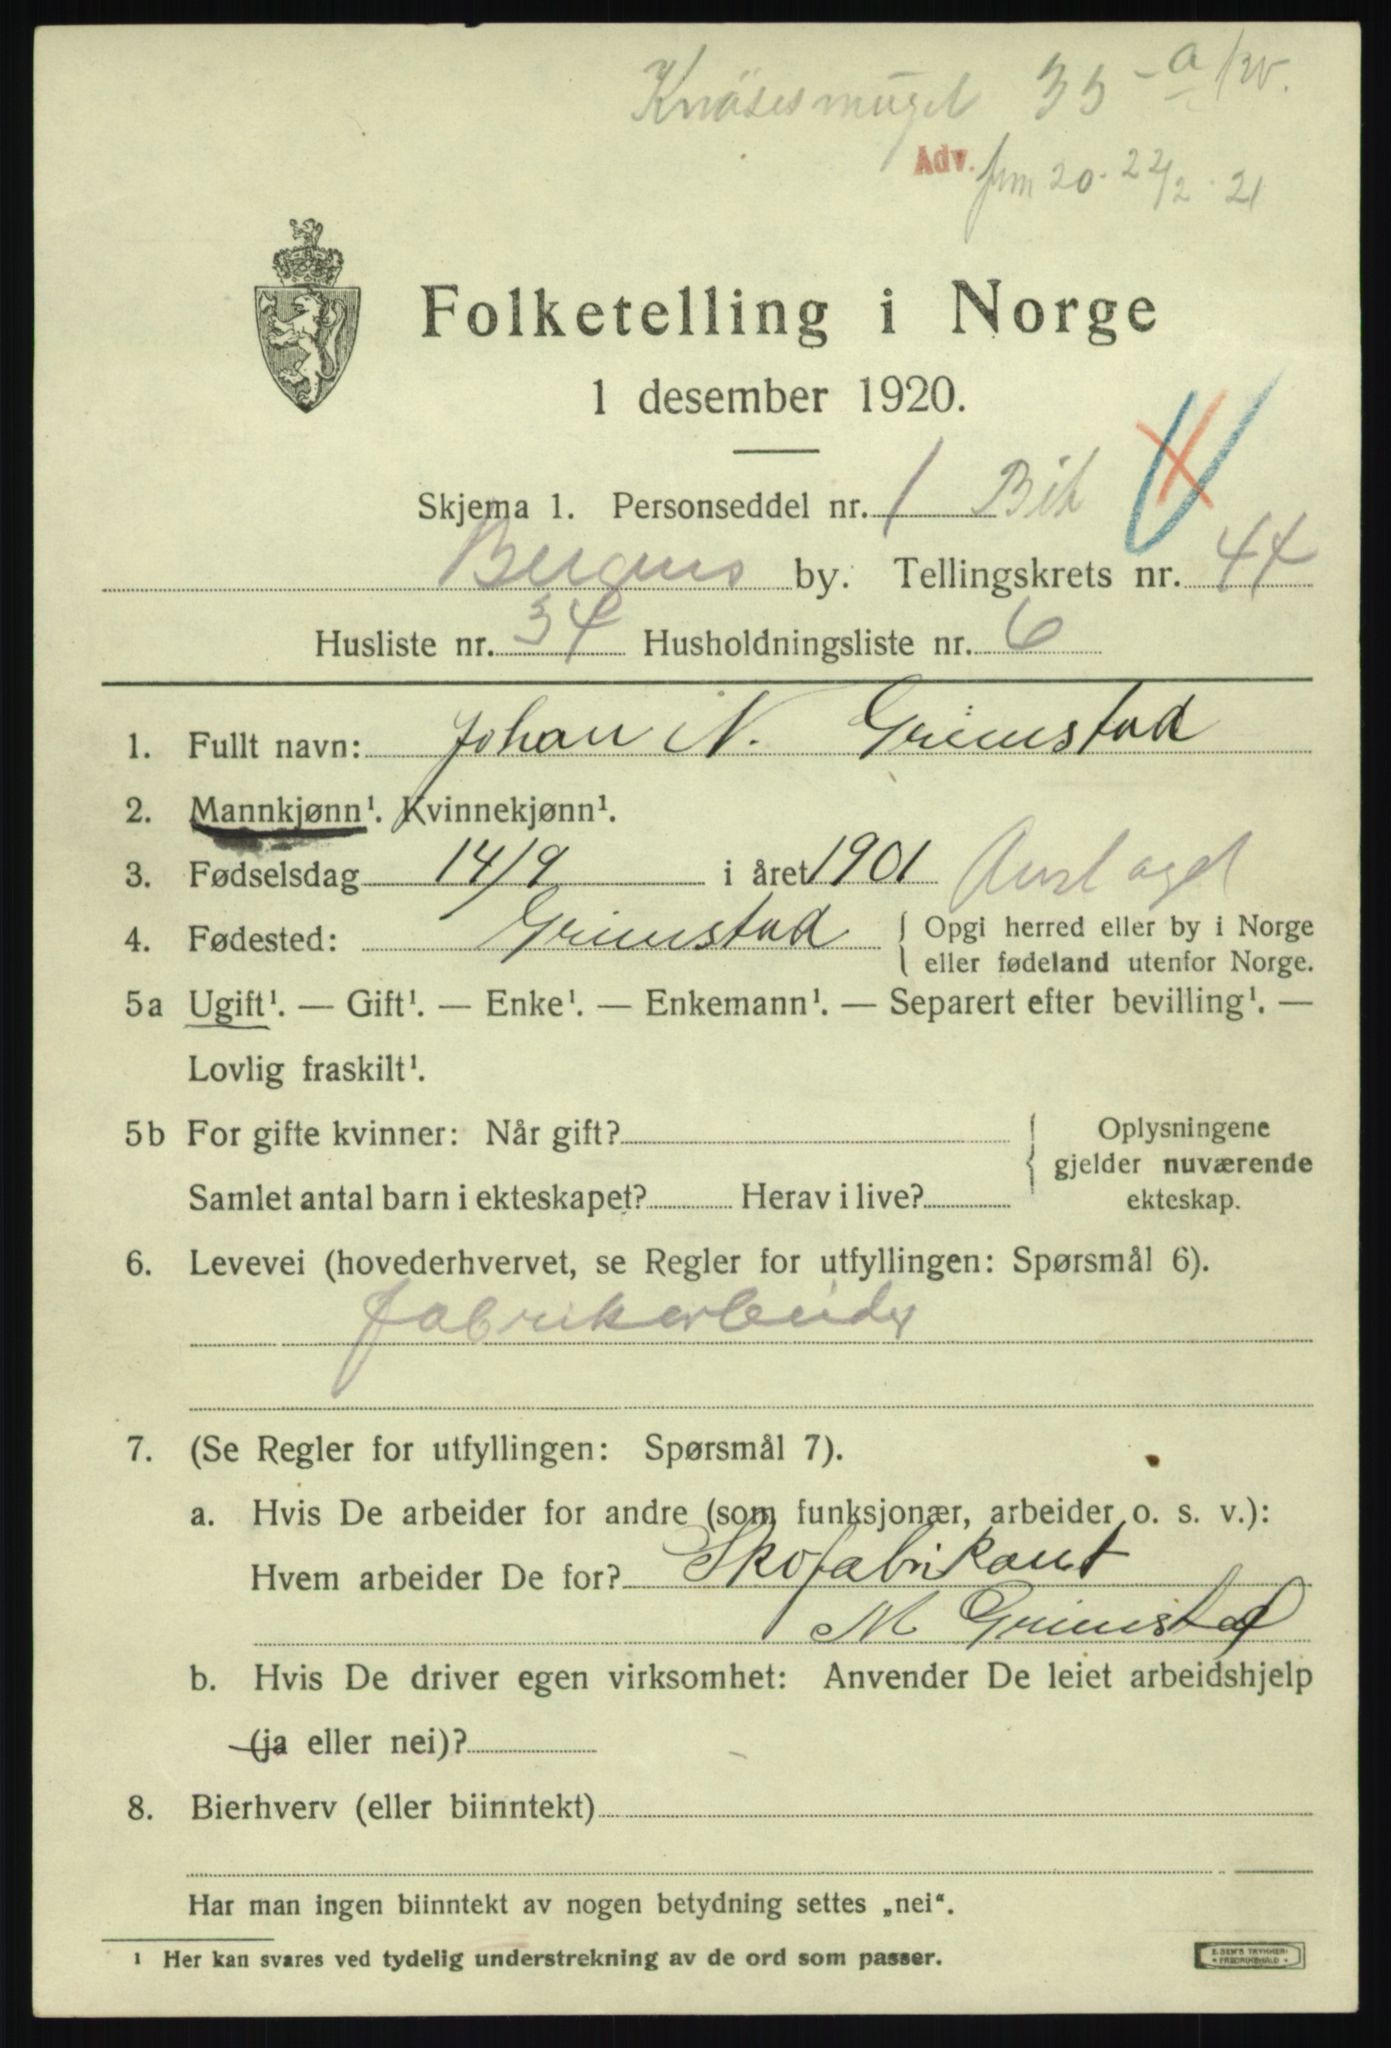 Knøsesmuget 35 - a/20.
Adv. frm 20. 22/2. 21
Folketelling i Norge
1 desember 1920.
Skjema 1. Personseddel nr. 1 Bih
Bergens by. Tellingskrets nr. 44
Husliste nr. 34 Husholdningsliste nr. 6
1. Fullt navn: Johan N. Grimstad
2. Mannkjønn¹. Kvinnekjønn¹.
3. Fødselsdag 14/9 i året 1901 Aust agd
4. Fødested: Grimstad { Opgi herred eller by i Norge
eller fødeland utenfor Norge.
5a Ugift¹. — Gift¹. — Enke¹. — Enkemann¹. — Separert efter bevilling¹. —
Lovlig fraskilt¹.
5b For gifte kvinner: Når gift? { Oplysningene
gjelder nuværende
Samlet antal barn i ekteskapet? Herav i live? ekteskap.
6. Levevei (hovederhvervet, se Regler for utfyllingen: Spørsmål 6).
fabrikarbeider
7. (Se Regler for utfyllingen: Spørsmål 7).
a. Hvis De arbeider for andre (som funksjonær, arbeider o. s. v.):
Hvem arbeider De for? Skofabrikant
M Grimstad
b. Hvis De driver egen virksomhet: Anvender De leiet arbeidshjelp
(ja eller nei)?
8. Bierhverv (eller biinntekt)
Har man ingen biinntekt av nogen betydning settes „nei“.
¹ Her kan svares ved tydelig understrekning av de ord som passer.